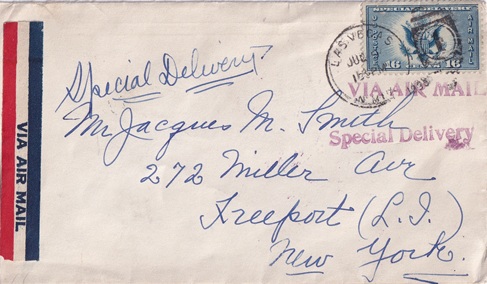 SPECIAL DELIVERY
AIR MAIL
16 16
LAS VEGAS
VIA AIR MAIL
Special Delivery
Special Delivery
Mr Jacques M. Smith
272 Miller Ave
Freeport (L.I.)
New York.
VIA AIR MAIL